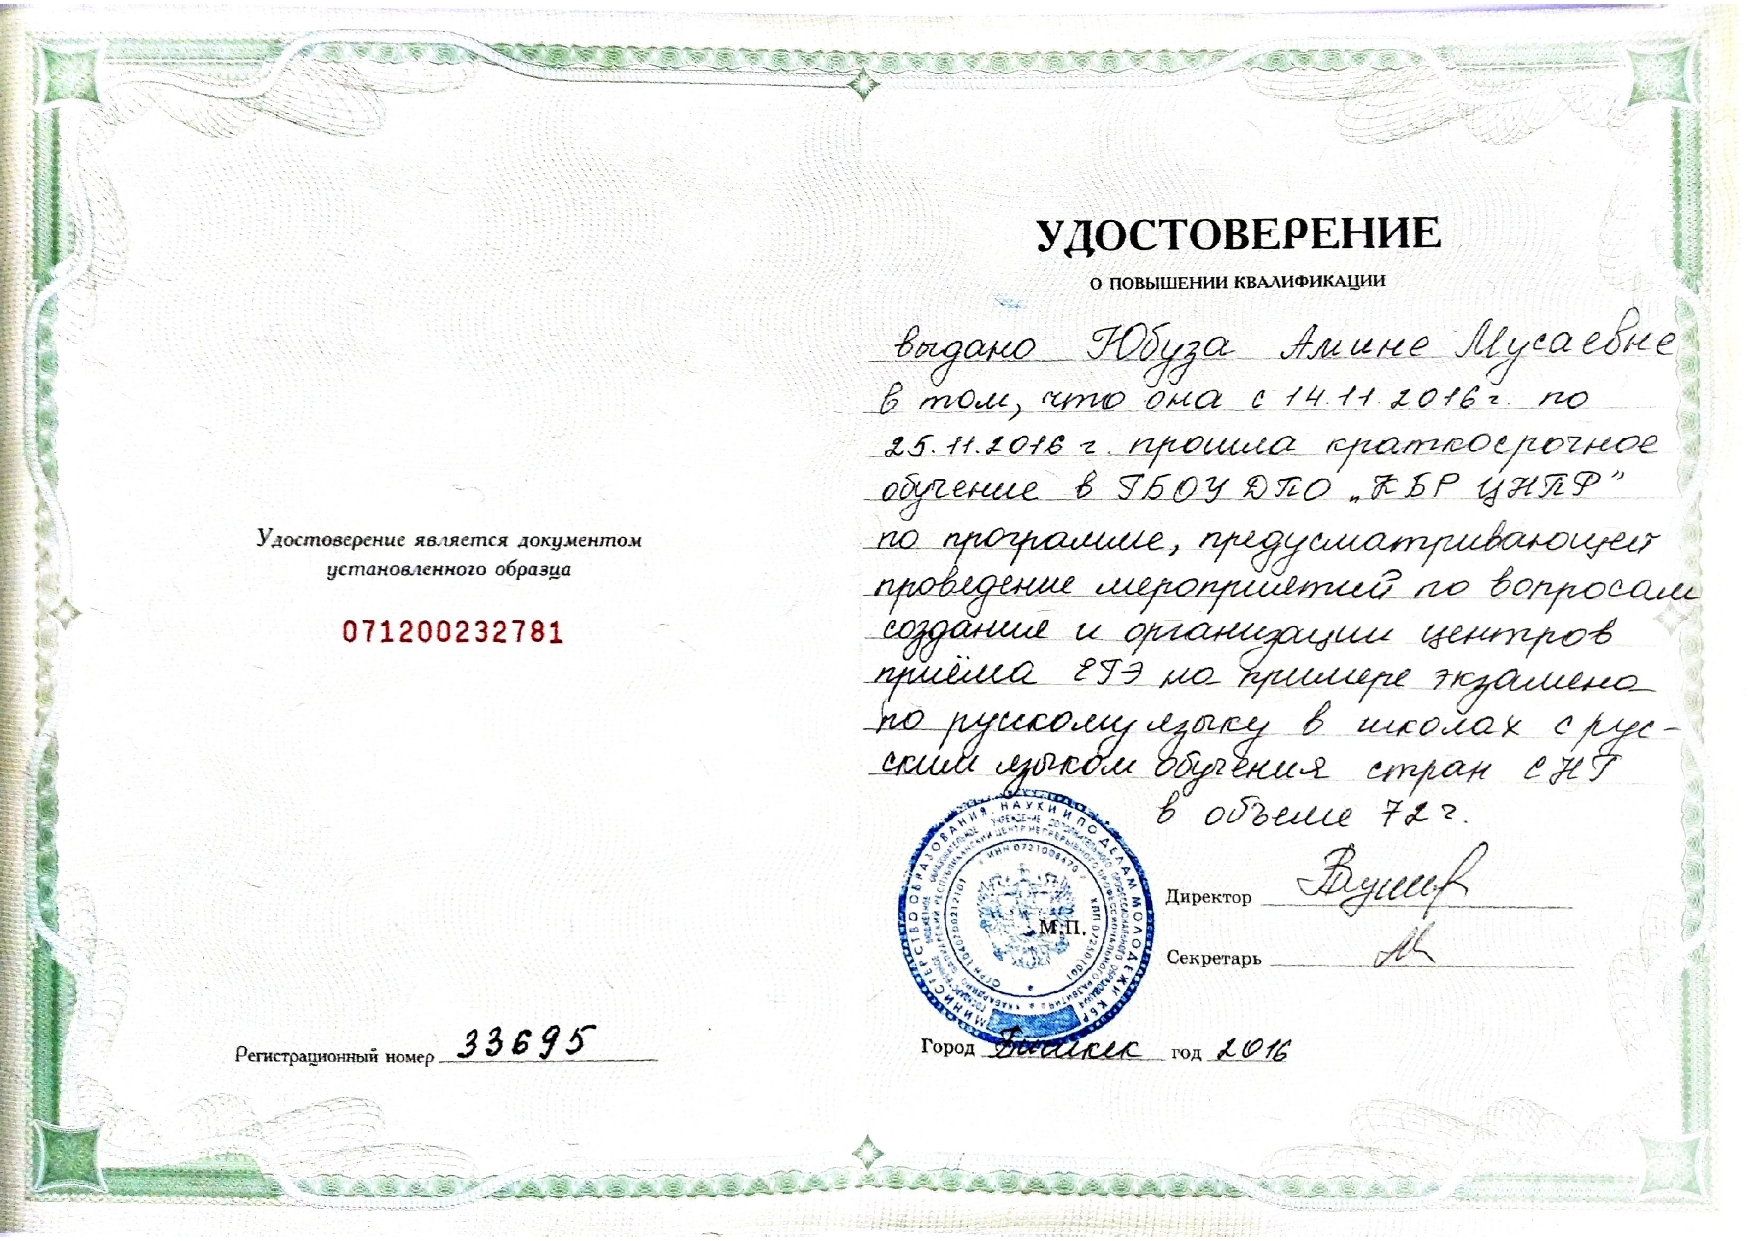 Удостоверение является документом
установленного образца
071200232781
Регистрационный номер 33695
УДОСТОВЕРЕНИЕ
О ПОВЫШЕНИИ КВАЛИФИКАЦИИ
выдано Юбуза Амине Мусаевне
в том, что она с 14.11.2016 г. по
25.11.2016 г. прошла краткосрочное
обучение в ГБОУ ДПО „КБР ЦНПР"
по программе, предусматривающей
проведение мероприятий по вопросам
создания и организации центров
приёма ЕГЭ на примере экзамена
по русскому языку в школах с рус-
ским языком обучения стран СНГ
в объеме 72 ч.
МИНИСТЕРСТВО ОБРАЗОВАНИЯ, НАУКИ И ПО ДЕЛАМ МОЛОДЕЖИ КБР
М.П.
Директор
Секретарь
Город Бишкек год 2016